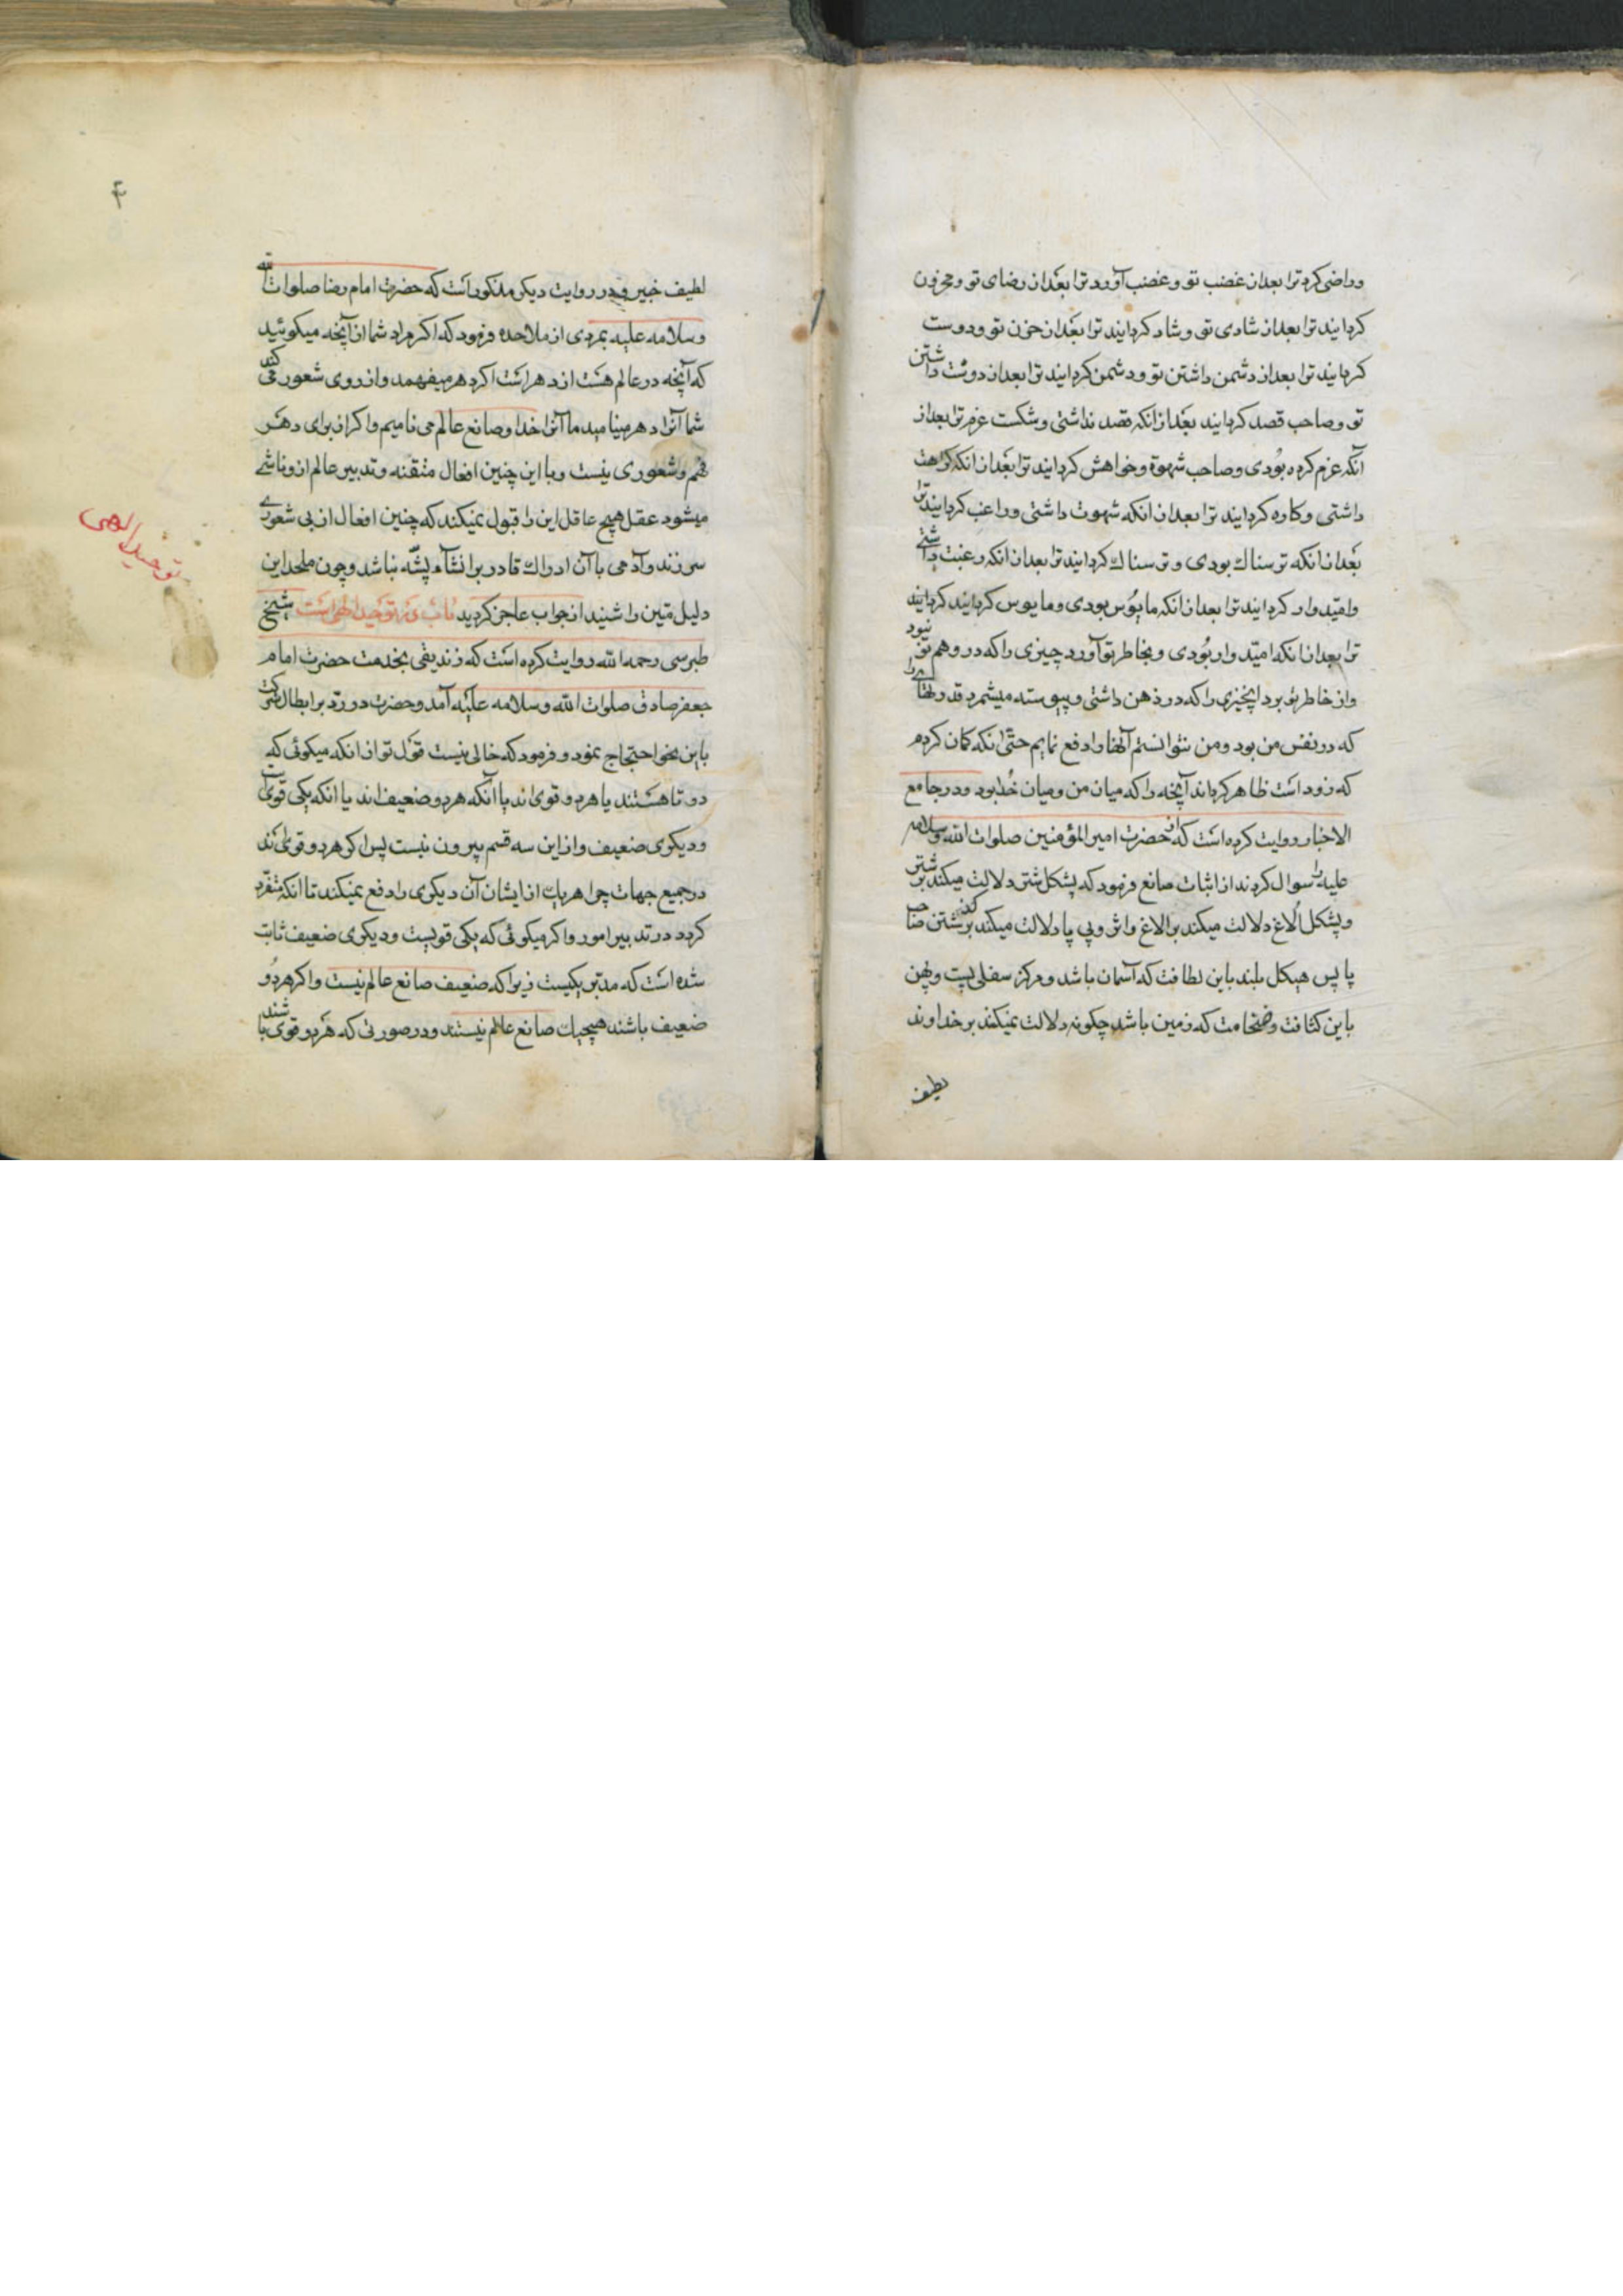 وراضی کرد ترا بعداز غضب تو و غضب آورد ترا بعداز رضای تو و محزون
کردانید ترا بعداز شادی تو و شاد کردانید ترا بعداز حزن تو و دوست
کردانید ترا بعداز دشمن داشتن تو و دشمن کردانید ترا بعداز دوست داشتن
تو و صاحب قصد کردانید بعداز انکه قصد نداشتی و شکست عزم ترا بعداز
آنکه عزم کرده بودی و صاحب شهوة و خواهش کردانید ترا بعداز انکه کراهت
داشتی و کاره کردانید ترا بعداز انکه شهوت داشتی و راغب کردانید ترا
بعداز انکه ترسناک بودی و ترسناک کردانید ترا بعداز انکه رغبت داشتی
وامیدوار کردانید ترا بعداز انکه مایوس بودی و مایوس کردانید کردانید
ترا بعداز انکه امیدوار بودی و بخاطر تو آورد چیزی را که در وهم تو نبود
واز خاطر تو برد اینچیزی را که در ذهن داشتی و پیوسته میشمرد قدرتهای را
که در نفس من بود و من نتوانستم آنها را دفع نمایم حتی انکه کمان کردم
که زود است ظاهر کرداند آنچه را که میان من و میان خدا بود و در جامع
الاخبار روایت کرده است که از حضرت امیر المؤمنین صلوات الله و سلامه
علیه را سوال کردند از اثبات صانع فرمود که پشکل شتر دلالت میکند بر شتر
و پشکل الاغ دلالت میکند بر الاغ و اثر و پی پا دلالت میکند بر کذشتن صاحب
پا پس هیکل بلند باین لطافت که آسمان باشد و مرکز سفلی پست و پهن
باین کثافت و ضخامت که زمین باشد چکونه دلالت نمیکند بر خداوند
لطیف
۴
لطیف خبیر و در روایت دیکر مذکور است که حضرت امام رضا صلوات الله
و سلامه علیه بمردی از ملاحده فرمود که اکر مراد شما از آنچه میکوئید
که آنچه در عالم هست از دهر است اکر دهر میفهمد و از روی شعور میکند
شما آنرا دهر مینامید ما آنرا خدا و صانع عالم می نامیم و اکر از برای دهر
فهم و شعوری نیست و با این چنین افعال متقنه و تدبیر عالم از و ناشی
میشود عقل هیچ عاقل این را قبول نمیکند که چنین افعال از بی شعوری
سر زند و آدمی با آن ادراک قادر بر انشاء پشه نباشد و چون ملحد این
دلیل متین را شنید از جواب عاجز کردید باب در توحید الهی است شیخ
توحید الهی
طبرسی رحمه الله روایت کرده است که زندیقی بخدمت حضرت امام
جعفر صادق صلوات الله و سلامه علیه آمد و حضرت در رد بر ابطال شرکت
باین نحو احتجاج نمود و فرمود که خالی نیست قول تو از انکه میکوئی که
دو تا هستند یا هر دو قوی اند یا آنکه هر دو ضعیف اند یا انکه یکی قوی است
و دیکری ضعیف و از این سه قسم بیرون نیست پس اکر هر دو قوی اند
در جمیع جهات چرا هر یک از ایشان آن دیکری را دفع نمیکند تا انکه متفرد
کردد در تدبیر امور و اکر میکوئی که یکی قویست و دیکری ضعیف ثابت
شده است که مدبر یکیست زیرا که ضعیف صانع عالم نیست و اکر هر دو
ضعیف باشند هیچیک صانع عالم نیستند و در صورتی که هر دو قوی باشند